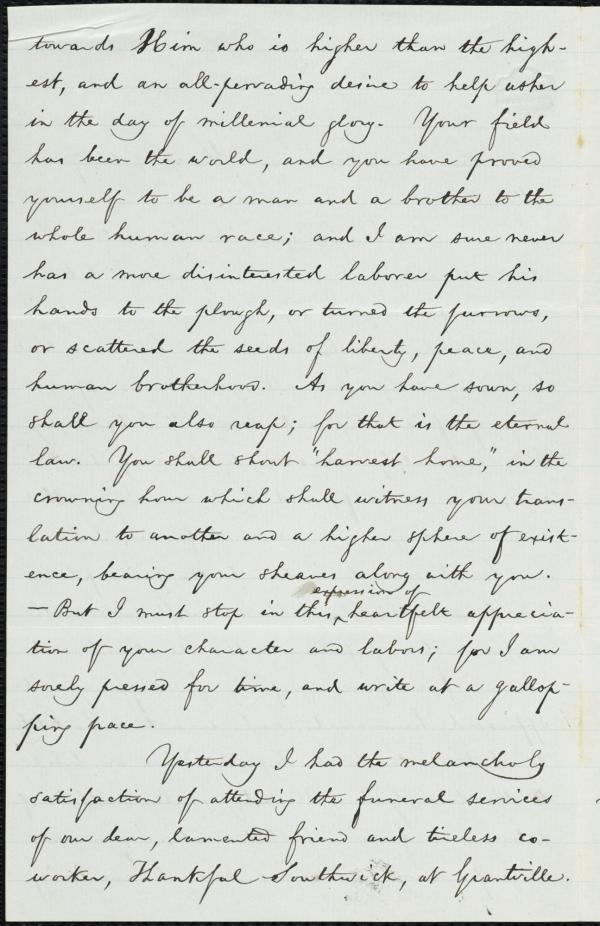 towards Him who is higher than the high-
est, and an all-pervading desire to help usher
in the day of millenial glory. Your field
has been the world, and you have proved
yourself to be a man and a brother to the
whole human race; and I am sure never
has a more disinterested laborer put his
hands to the plough, or turned the furrows,
or scattered the seeds of liberty, peace, and
human brotherhood. As you have sown, so
shall you also reap; for that is the eternal
law. You shall shout "harvest home," in the
crowning hour which shall witness your trans-
lation to another and a higher sphere of exist-
ence, bearing your sheaves along with you.
expression of
— But I must stop in this ‸ heartfelt apprecia-
tion of your character and labors; for I am
sorely pressed for time, and write at a gallop-
ping pace.
Yesterday I had the melancholy
satisfaction of attending the funeral services
of our dear, lamented friend and tireless co-
worker, Thankful Southwick, at Grantville.